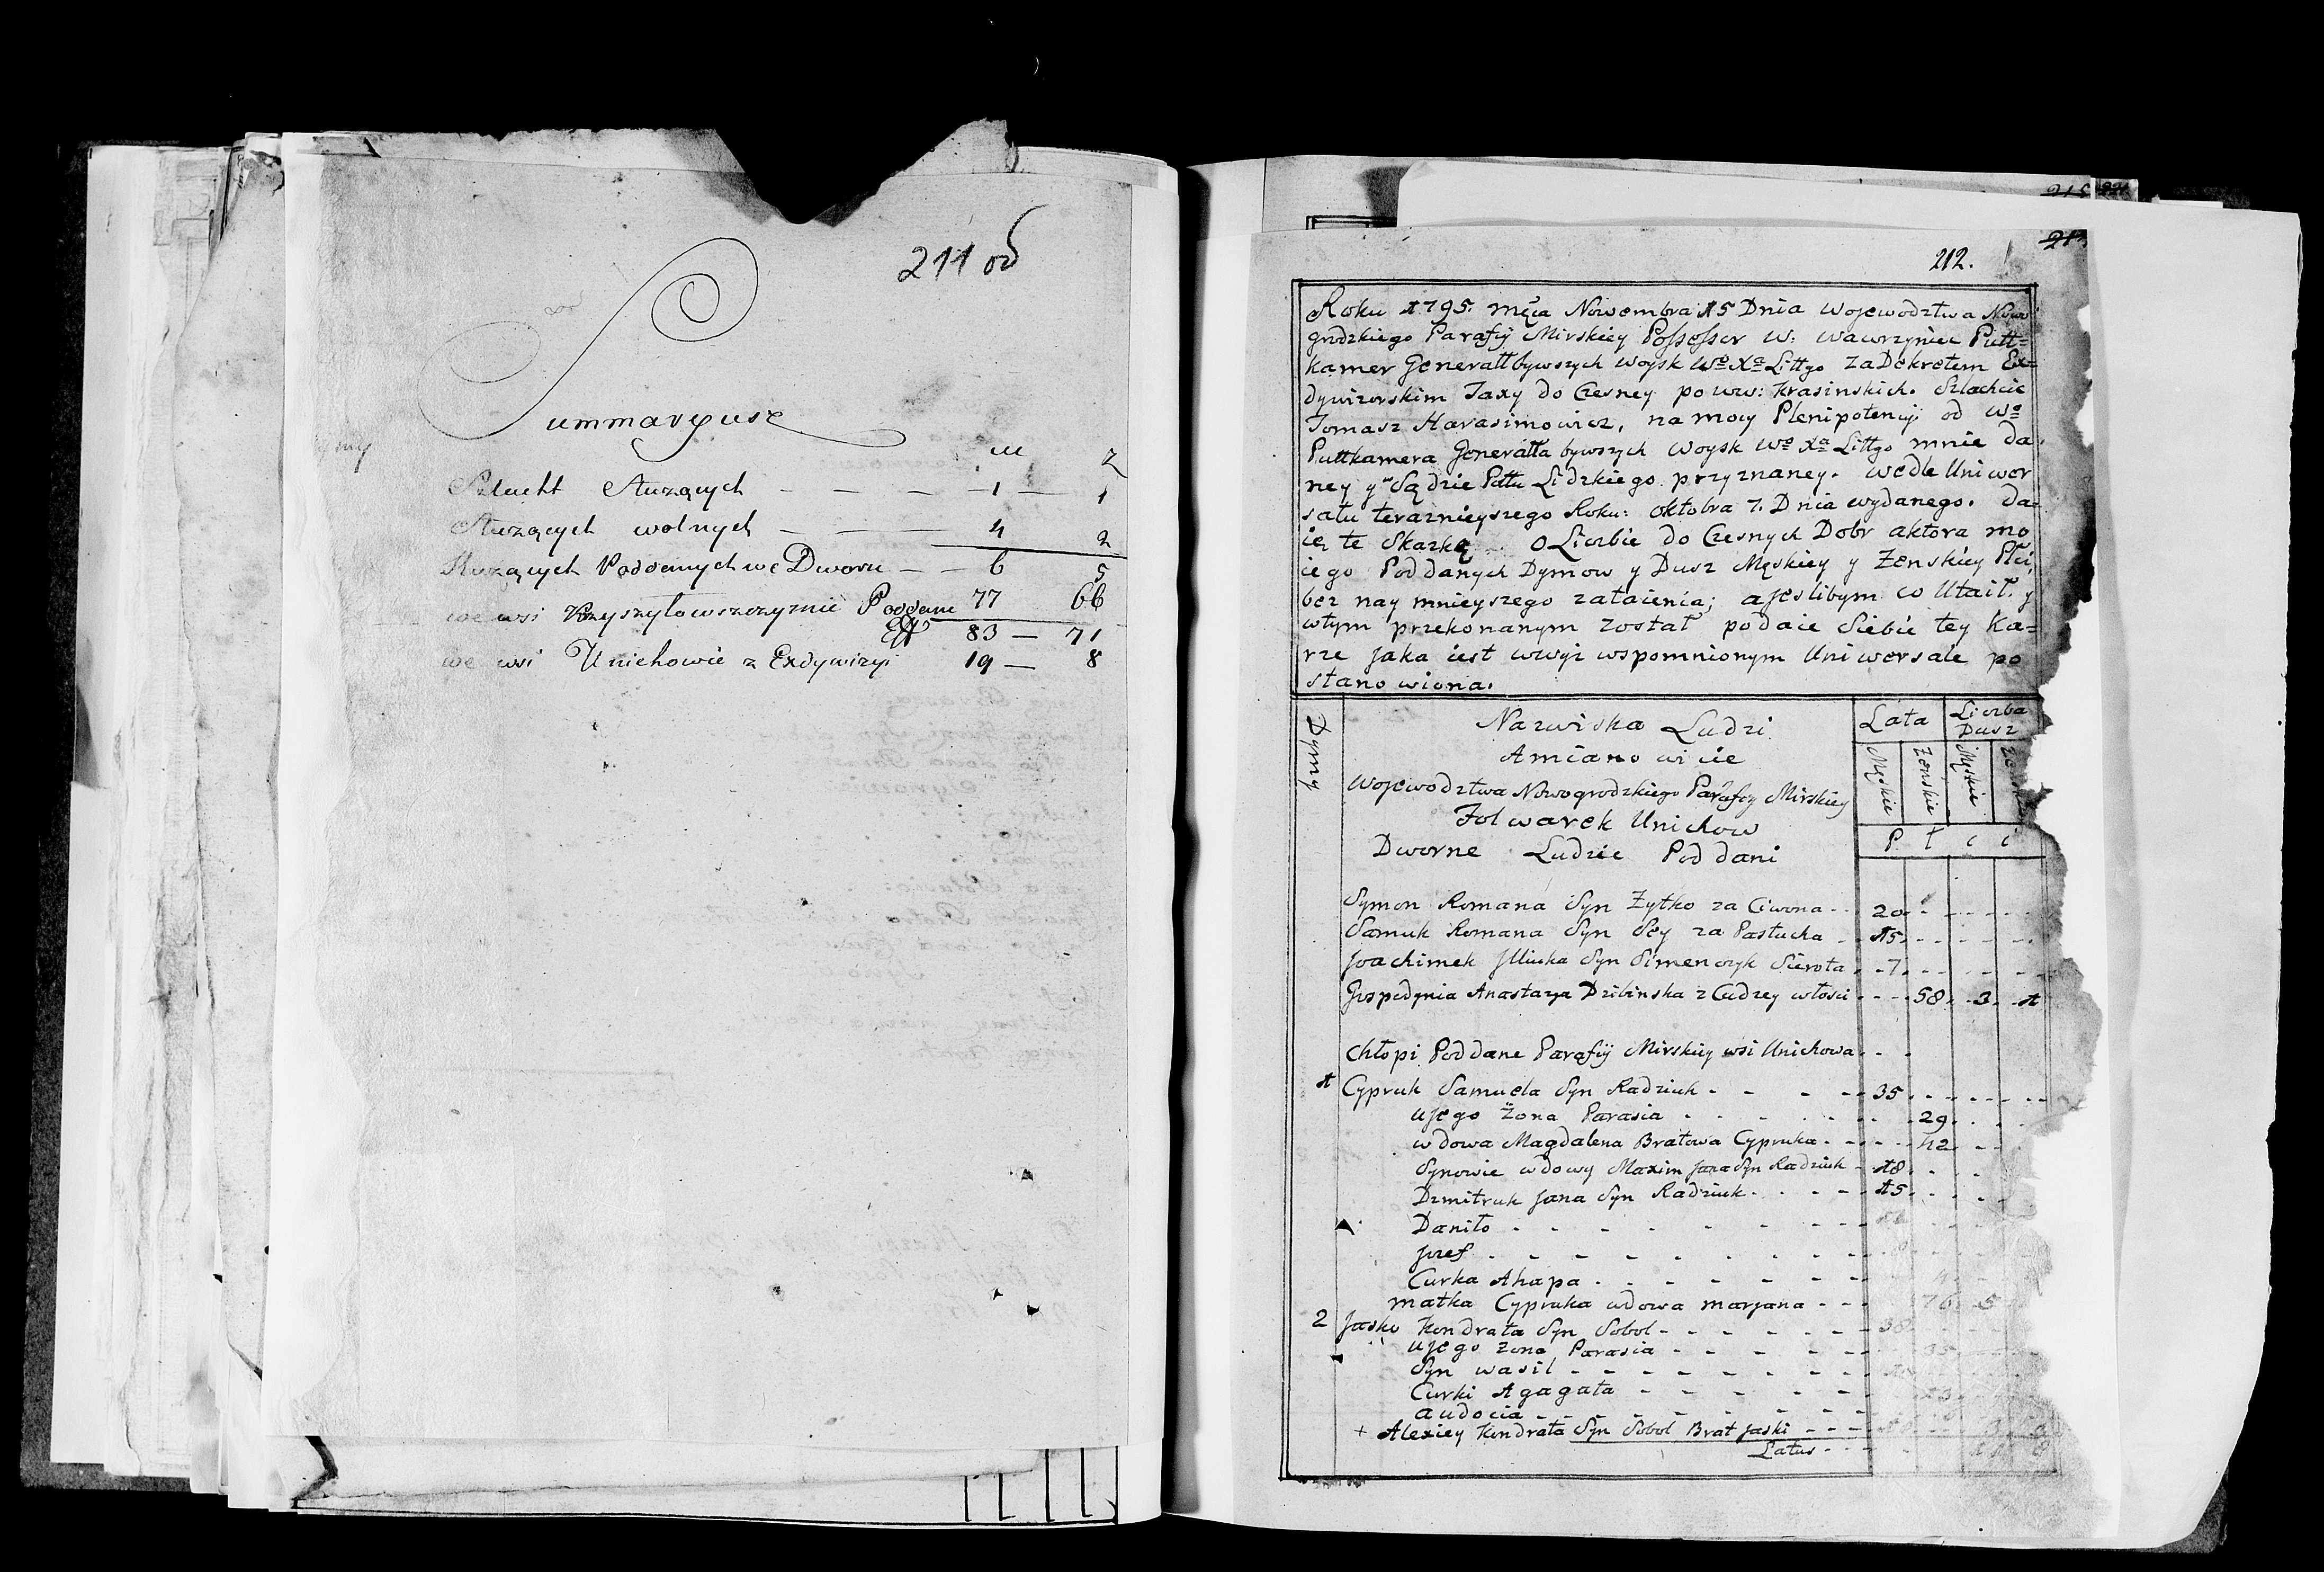 211 od
Summaryusz
m ż
Szlacht służących — — — 1 — 1
Służących wolnych — — 4 2
Służących Poddanych we Dworu — — 6 5
we wsi Krzyszyłowszczyznie Poddane 77 66
Eff 83 — 71
we wsi Unichowie z Exdywizyi 19 — 8
212.
Roku 1795. męca Nowembra 15 Dnia Wojewodztwa Nowo
grodzkiego Parafij Mirskiey Possessor W: Wawrzyniec Putt=
kamer Generałł bywszych woysk Wo Xa Littgo za Dekretem Ex=
dywizorskim Taxy do Czesney po ww: Krasinskich. Szlachcic
Tomasz Harasimowicz, na mocy Plenipotencyi od Wo
Puttkamera Generałła bywszych Woysk Wo Xa Littgo mnie da
ney y w Sądzie Pttu Lidzkiego przyznaney. wedle Uniwer
sału teraznieyszego Roku: oktobra 7. Dnia wydanego. da=
ię te Skazkę O Liczbie do Czesnych Dobr aktora mo
iego Poddanych Dymow y Dusz Męskiey y Żenskiey Płci,
bez nay mnieyszego zataienia; a jeslibym co Utaił. y
wtym przekonanym został podaie Siebie tey Ka=
rze jaka iest wwyż wspomnionym Uniwersale po
stanowiona.
Dymy
Nazwiska Ludzi
Amianowicie
Wojewodztwa Nowogrodzkiego Parafey Mirskiey
Folwarek Unichow
Dworne Ludzie Poddani
Lata
Liczba Dusz
Męskie Żenskie Męskie
P ł c i
Symon Romana Syn Żytko za Ciwona - - 20
Samuk Romana Syn Sey za Pastucha - 15
Joachimek Jlliuka Syn Simenczyk Sierota - 7
Gospodynia Anastazya Dzibinska z Cudzey włosci - - - 58 - 3 - 1
Chłopi Poddane Parafij Mirskiey wsi Unichowa - -
1 Cypruk Samuela Syn Radziuk - - - - 35
u jego Żona Parasia - - - 29
wdowa Magdalena Bratowa Cypruka - - - 42
Synowie wdowy Maxim Jana Syn Radziuk - 18
Dzmitruk Jana Syn Radziuk - - - - 15
Daniło - - - - - - -
Jozef - - - - - - - -
Curka Ahapa - - - - - - -
matka Cypruka wdowa maryana - - - 76 - 5
2 Jasko Kondrata Syn Sobol - - - - - - 38
u jego żona Parasia - - - - - 35
Syn wasil - - - - - - -
Curki Agagata - - - - -
audocia - - - - - - -
+ Alexiey Kondrata Syn Sobol Brat Jaski - - -
Latus - -